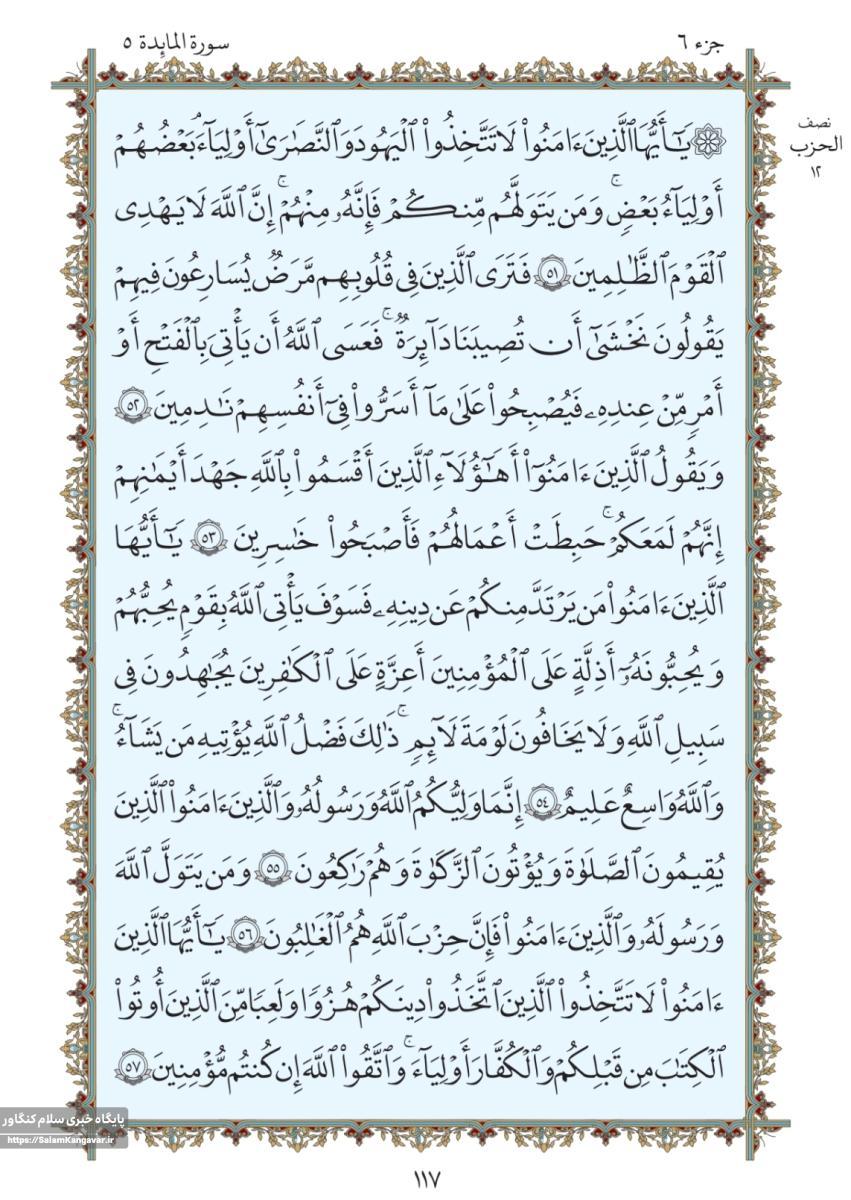 جزء ٦
سورة المائدة ٥
نصف
الحزب
١٢
۞ يَٰٓأَيُّهَا ٱلَّذِينَ ءَامَنُواْ لَا تَتَّخِذُواْ ٱلۡيَهُودَ وَٱلنَّصَٰرَىٰٓ أَوۡلِيَآءَۘ بَعۡضُهُمۡ
أَوۡلِيَآءُ بَعۡضٖۚ وَمَن يَتَوَلَّهُم مِّنكُمۡ فَإِنَّهُۥ مِنۡهُمۡۗ إِنَّ ٱللَّهَ لَا يَهۡدِي
ٱلۡقَوۡمَ ٱلظَّٰلِمِينَ ٥١ فَتَرَى ٱلَّذِينَ فِي قُلُوبِهِم مَّرَضٞ يُسَٰرِعُونَ فِيهِمۡ
يَقُولُونَ نَخۡشَىٰٓ أَن تُصِيبَنَا دَآئِرَةٞۚ فَعَسَى ٱللَّهُ أَن يَأۡتِيَ بِٱلۡفَتۡحِ أَوۡ
أَمۡرٖ مِّنۡ عِندِهِۦ فَيُصۡبِحُواْ عَلَىٰ مَآ أَسَرُّواْ فِيٓ أَنفُسِهِمۡ نَٰدِمِينَ ٥٢
وَيَقُولُ ٱلَّذِينَ ءَامَنُوٓاْ أَهَٰٓؤُلَآءِ ٱلَّذِينَ أَقۡسَمُواْ بِٱللَّهِ جَهۡدَ أَيۡمَٰنِهِمۡ
إِنَّهُمۡ لَمَعَكُمۡۚ حَبِطَتۡ أَعۡمَٰلُهُمۡ فَأَصۡبَحُواْ خَٰسِرِينَ ٥٣ يَٰٓأَيُّهَا
ٱلَّذِينَ ءَامَنُواْ مَن يَرۡتَدَّ مِنكُمۡ عَن دِينِهِۦ فَسَوۡفَ يَأۡتِي ٱللَّهُ بِقَوۡمٖ يُحِبُّهُمۡ
وَيُحِبُّونَهُۥٓ أَذِلَّةٍ عَلَى ٱلۡمُؤۡمِنِينَ أَعِزَّةٍ عَلَى ٱلۡكَٰفِرِينَ يُجَٰهِدُونَ فِي
سَبِيلِ ٱللَّهِ وَلَا يَخَافُونَ لَوۡمَةَ لَآئِمٖۚ ذَٰلِكَ فَضۡلُ ٱللَّهِ يُؤۡتِيهِ مَن يَشَآءُۚ
وَٱللَّهُ وَٰسِعٌ عَلِيمٌ ٥٤ إِنَّمَا وَلِيُّكُمُ ٱللَّهُ وَرَسُولُهُۥ وَٱلَّذِينَ ءَامَنُواْ ٱلَّذِينَ
يُقِيمُونَ ٱلصَّلَوٰةَ وَيُؤۡتُونَ ٱلزَّكَوٰةَ وَهُمۡ رَٰكِعُونَ ٥٥ وَمَن يَتَوَلَّ ٱللَّهَ
وَرَسُولَهُۥ وَٱلَّذِينَ ءَامَنُواْ فَإِنَّ حِزۡبَ ٱللَّهِ هُمُ ٱلۡغَٰلِبُونَ ٥٦ يَٰٓأَيُّهَا ٱلَّذِينَ
ءَامَنُواْ لَا تَتَّخِذُواْ ٱلَّذِينَ ٱتَّخَذُواْ دِينَكُمۡ هُزُوٗا وَلَعِبٗا مِّنَ ٱلَّذِينَ أُوتُواْ
ٱلۡكِتَٰبَ مِن قَبۡلِكُمۡ وَٱلۡكُفَّارَ أَوۡلِيَآءَۚ وَٱتَّقُواْ ٱللَّهَ إِن كُنتُم مُّؤۡمِنِينَ ٥٧
پایگاه خبری سلام کنگاور
https://SalamKangavar.ir
١١٧